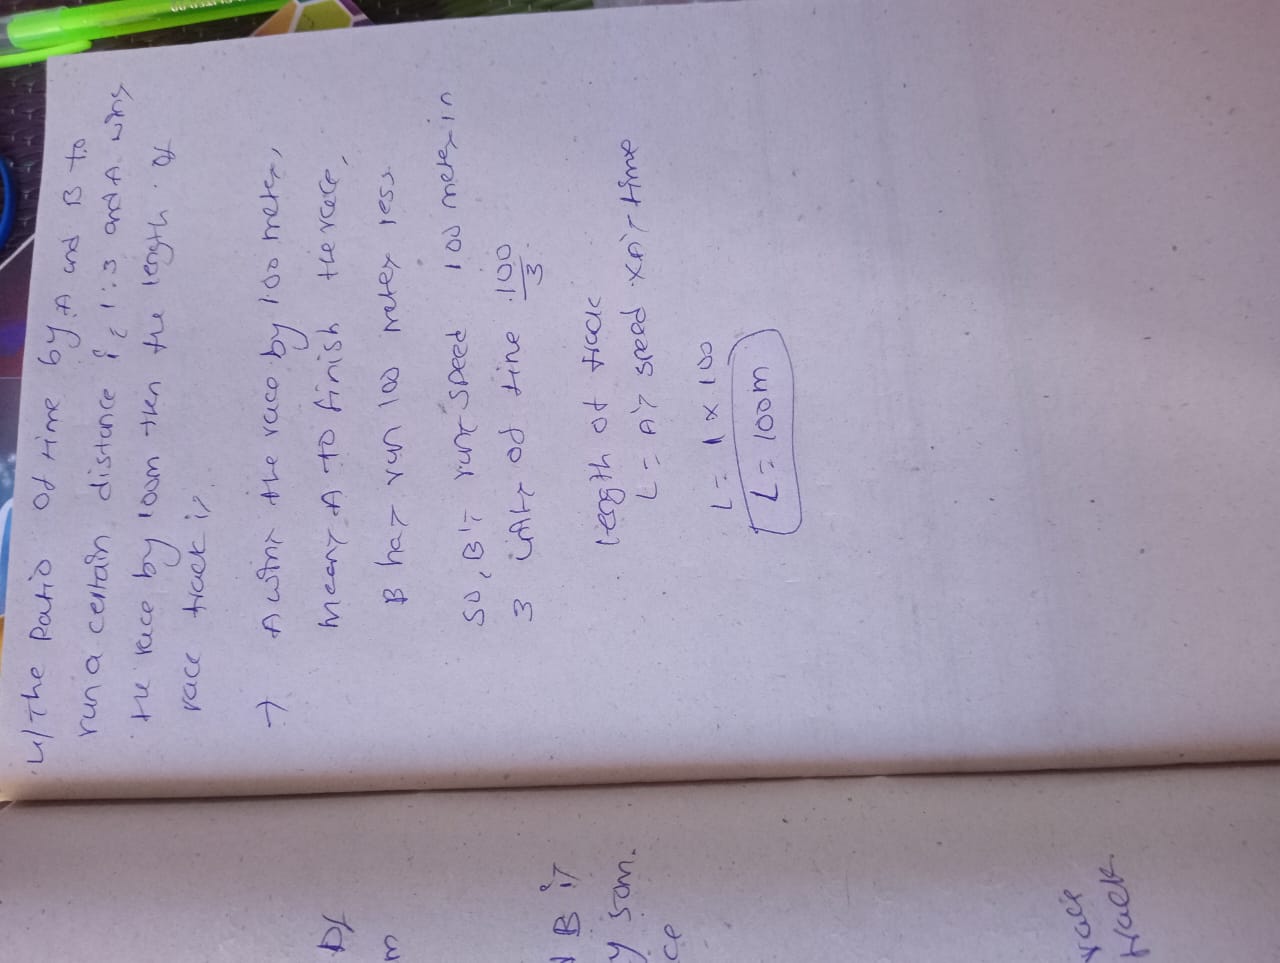 4/ The Ratio of time by A and B to
run a certain distance is 1:3 and A wins
the race by 100m then the length of
race track is
→ A wins the race by 100 meter,
means A to finish the race,
B has run 100 meter less
so, B's runs speed 100 meter in
3 of time 100/3
length of track
L = A's speed x A's time
L = 1 x 100
L = 100m
Of
m
B is
y 50m.
ce
race
track